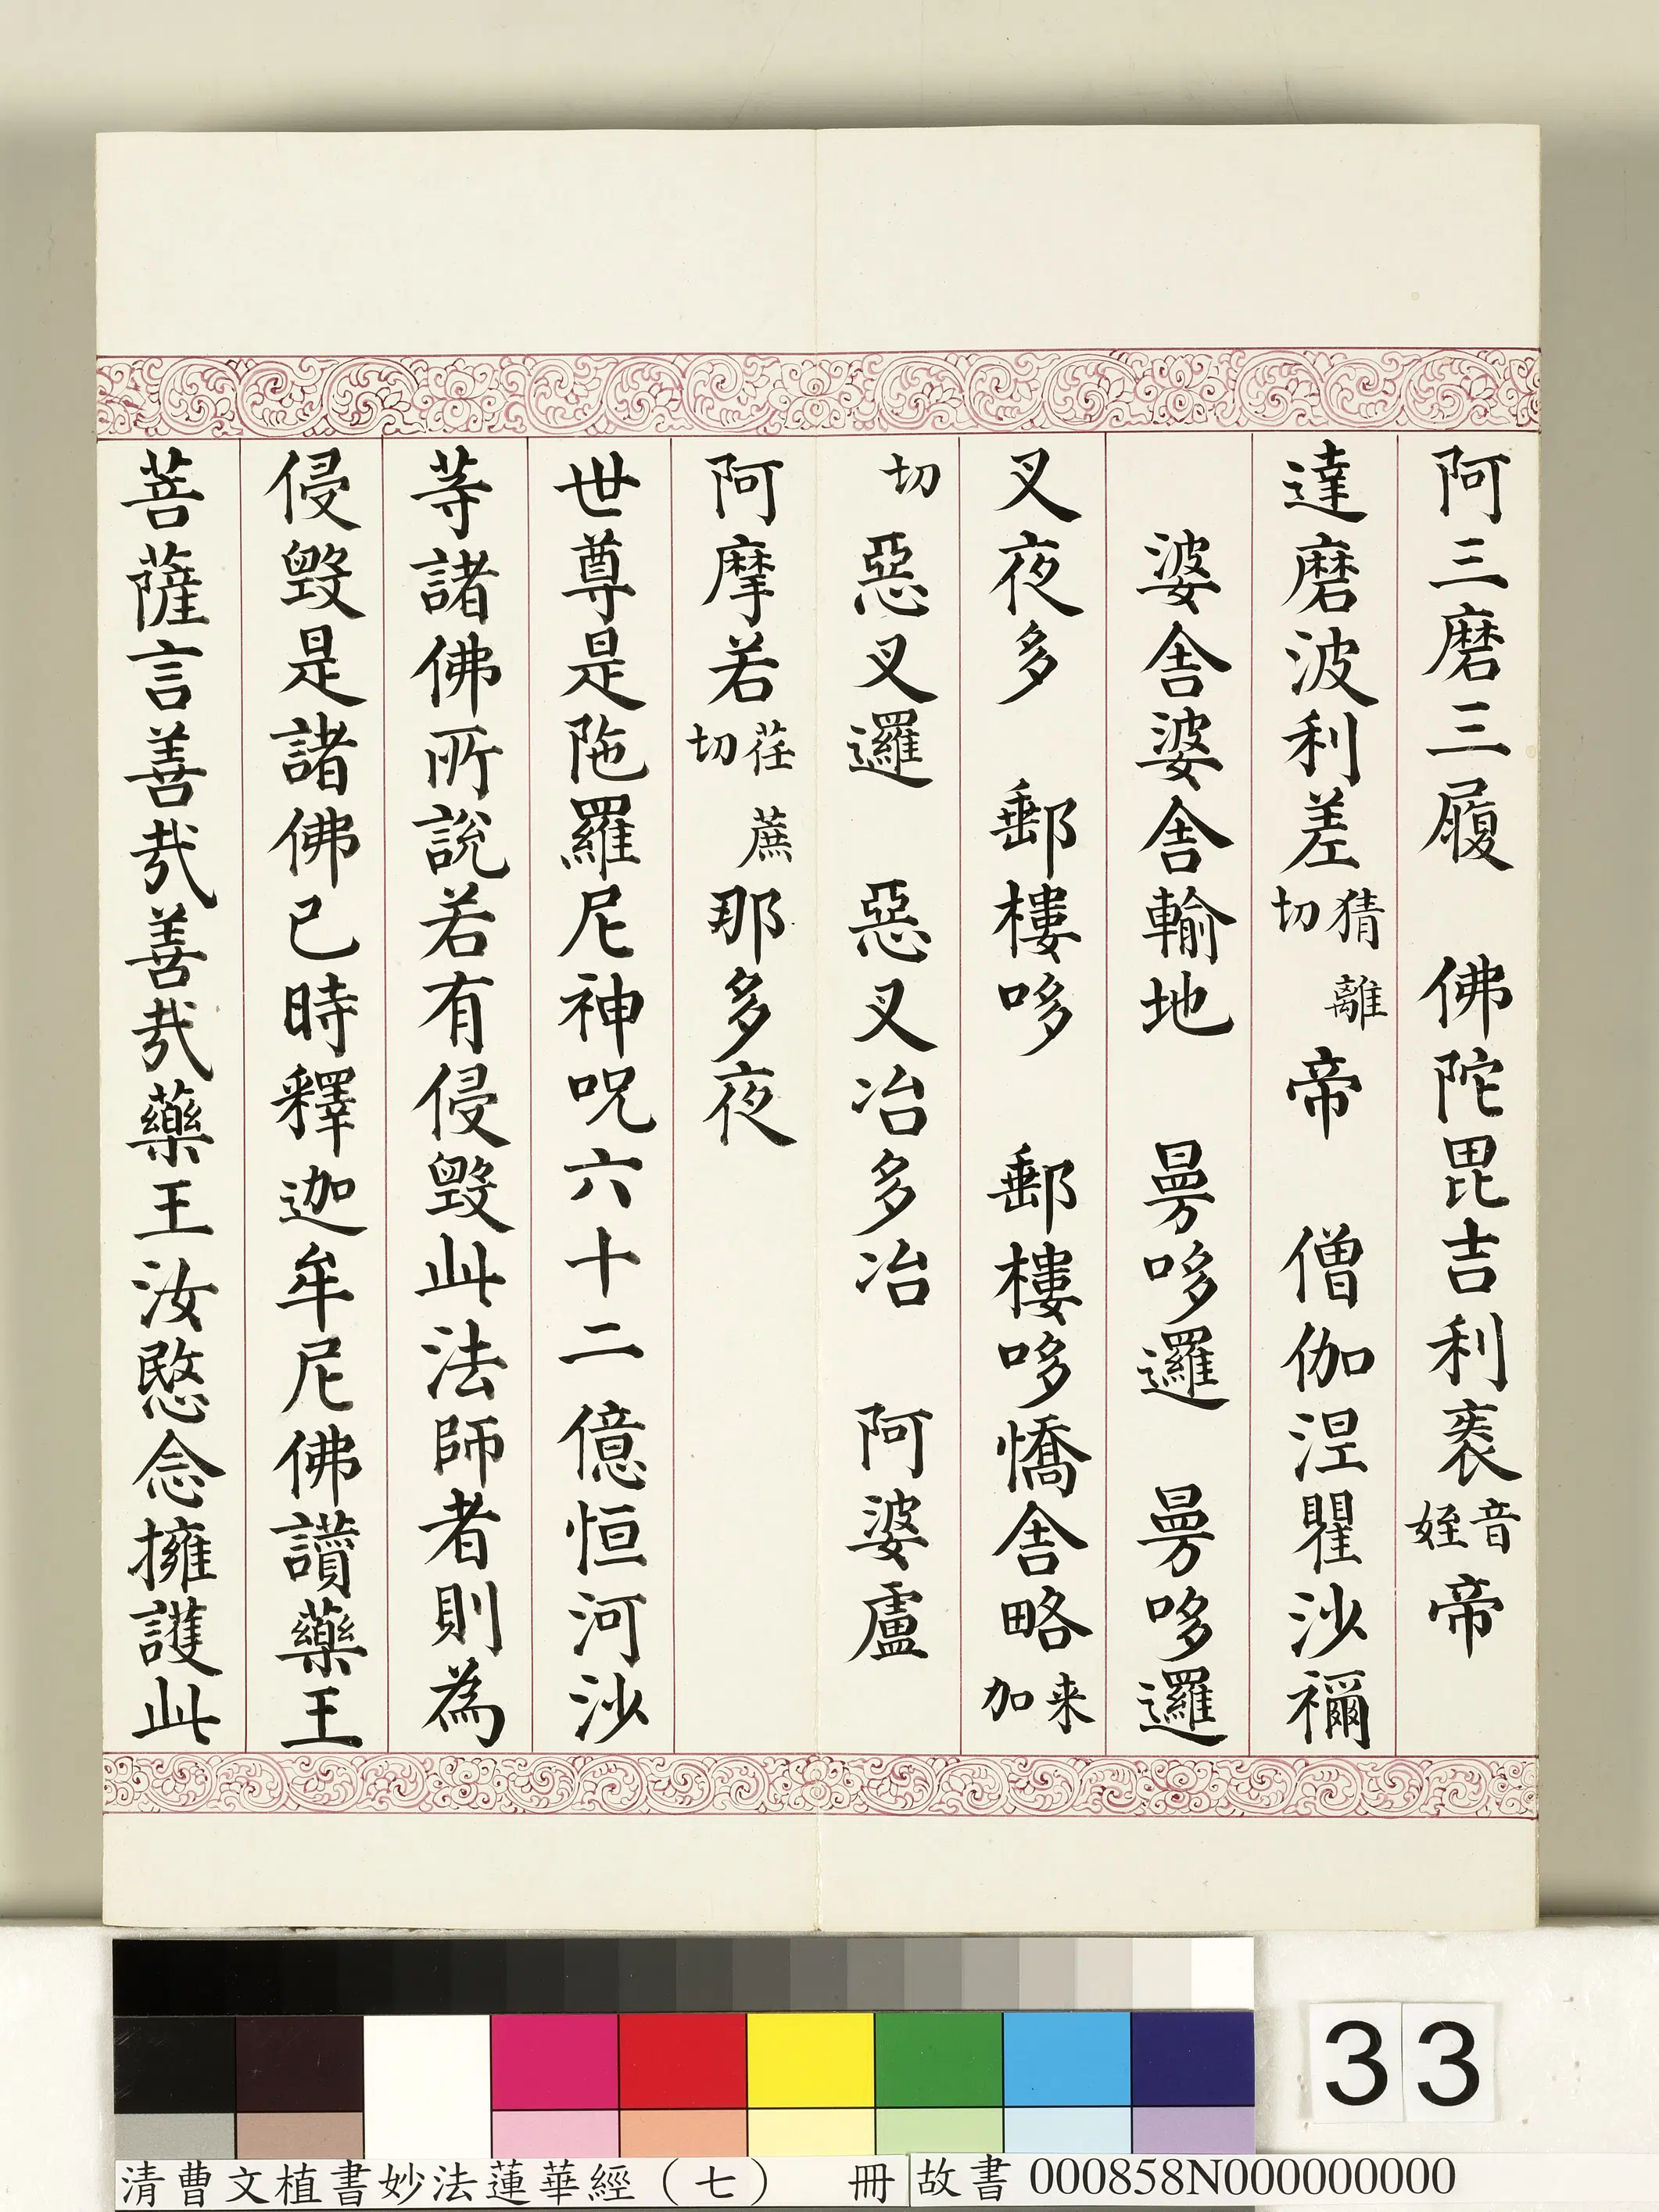 阿三磨三履　佛陀毘吉利袠音姪帝
達磨波利差猜離切帝　僧伽涅瞿沙禰
婆舍婆舍輸地　曼哆邏　曼哆邏
叉夜多　郵樓哆　郵樓哆憍舍略来加
切惡叉邏　惡叉冶多冶　阿婆盧
阿摩若荏蔗切那多夜
世尊是陁羅尼神呪六十二億恒河沙
等諸佛所說若有侵毀此法師者則為
侵毀是諸佛已時釋迦牟尼佛讚藥王
菩薩言善哉善哉藥王汝愍念擁護此
33
清曹文植書妙法蓮華經（七）　冊　故書000858N000000000